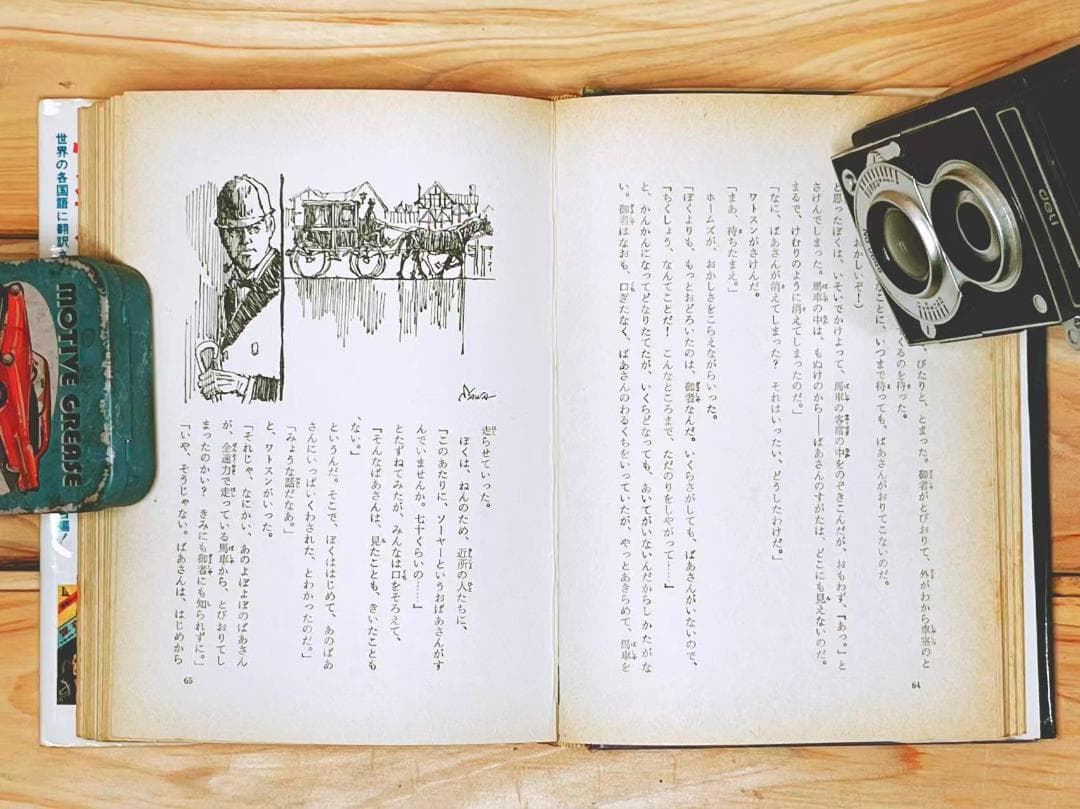 、ぴたりと、とまった。御者がとびおりて、外がわから車室のと
るのを待った。
たことに、いつまで待っても、ばあさんがおりてこないのだ。
おかしいぞ！）
と思ったぼくは、いそいでかけよって、馬車の客席の中をのぞきこんだが、おもわず、『あっ。』と
さけんでしまった。馬車の中は、もぬけのから――ばあさんのすがたは、どこにも見えないのだ。
まるで、けむりのように消えてしまったのだ。」
「なに、ばあさんが消えてしまった？　それはいったい、どうしたわけだ。」
ワトスンがさけんだ。
「まあ、待ちたまえ。」
ホームズが、おかしさをこらえながらいった。
「ぼくよりも、もっとおどろいたのは、御者なんだ。いくらさがしても、ばあさんがいないので、
『ちくしょう、なんてことだ！　こんなところまで、ただのりをしやがって……』
と、かんかんになってどなりたてたが、いくらどなっても、あいてがいないんだからしかたがな
い。御者はなおも、口ぎたなく、ばあさんのわるくちをいっていたが、やっとあきらめて、馬車を
64
走らせていった。
ぼくは、ねんのため、近所の人たちに、
『このあたりに、ソーヤーというおばあさんがす
んでいませんか。七十くらいの……』
とたずねてみたが、みんなは口をそろえて、
『そんなばあさんは、見たことも、きいたことも
ない。』
というんだ。そこで、ぼくははじめて、あのばあ
さんにいっぱいくわされた、とわかったのだ。」
「みょうな話だなあ。」
と、ワトスンがいった。
「それじゃ、なにかい、あのよぼよぼのばあさん
が、全速力で走っている馬車から、とびおりてし
まったのかい？　きみにも御者にも知られずに。」
「いや、そうじゃない。ばあさんは、はじめから
65
世界の各国語に翻訳
MOTIVE GREASE
deli